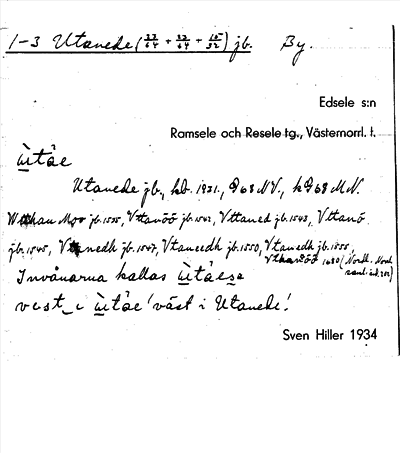 1-3 Utanede (23/64 + 23/64 + 10/32) jb. By.
Edsele s:n
Ramsele och Resele tg., Västernorrl. l.
ùtåe
Utanede jb., kb. 1931., 968 NV., k 968 MN.
jb. 1535, Vttanöö jb. 1542, Vttaned jb. 1543, Vttanö
jb. 1545, jb. 1547, Vtanedh jb. 1550, Vtanedh jb. 1558,
1480 (Nordl.
Invånarna kallas ùtåese
vest i ùtåe 'väst i Utanede'.
Sven Hiller 1934